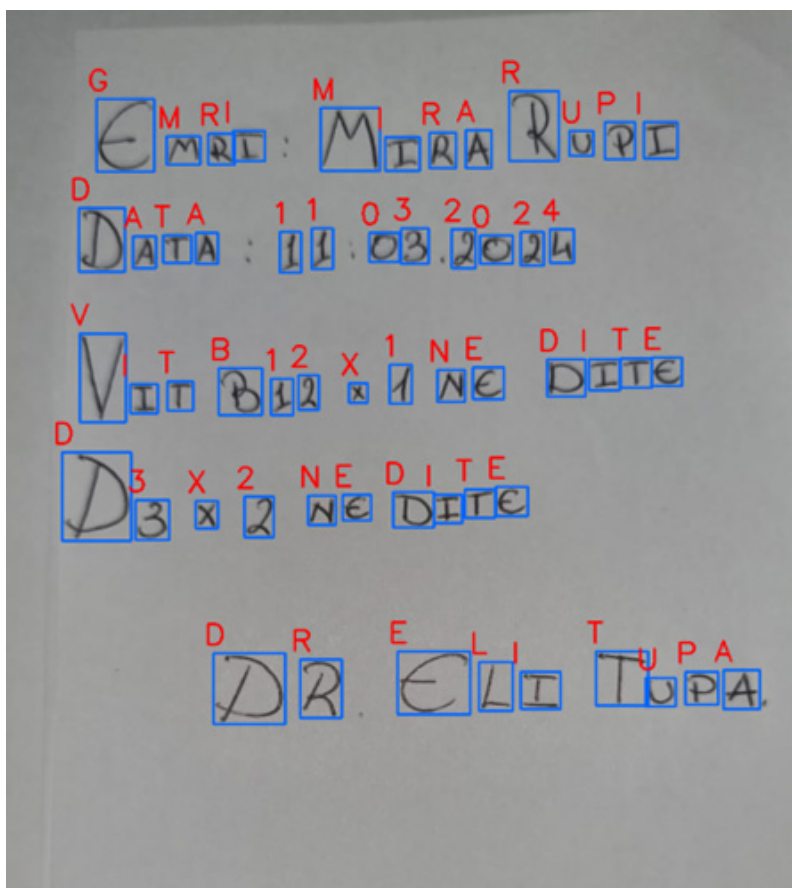 G M R I M I R A R U P I
EMRI: MIRA RUPI
D A T A 1 1 0 3 2 0 2 4
DATA: 11.03.2024
V I T B 1 2 X 1 N E D I T E
VIT B12 x 1 NE DITE
D 3 X 2 N E D I T E
D3 x 2 NE DITE
D R E L I T U P A
DR. ELI TUPA.